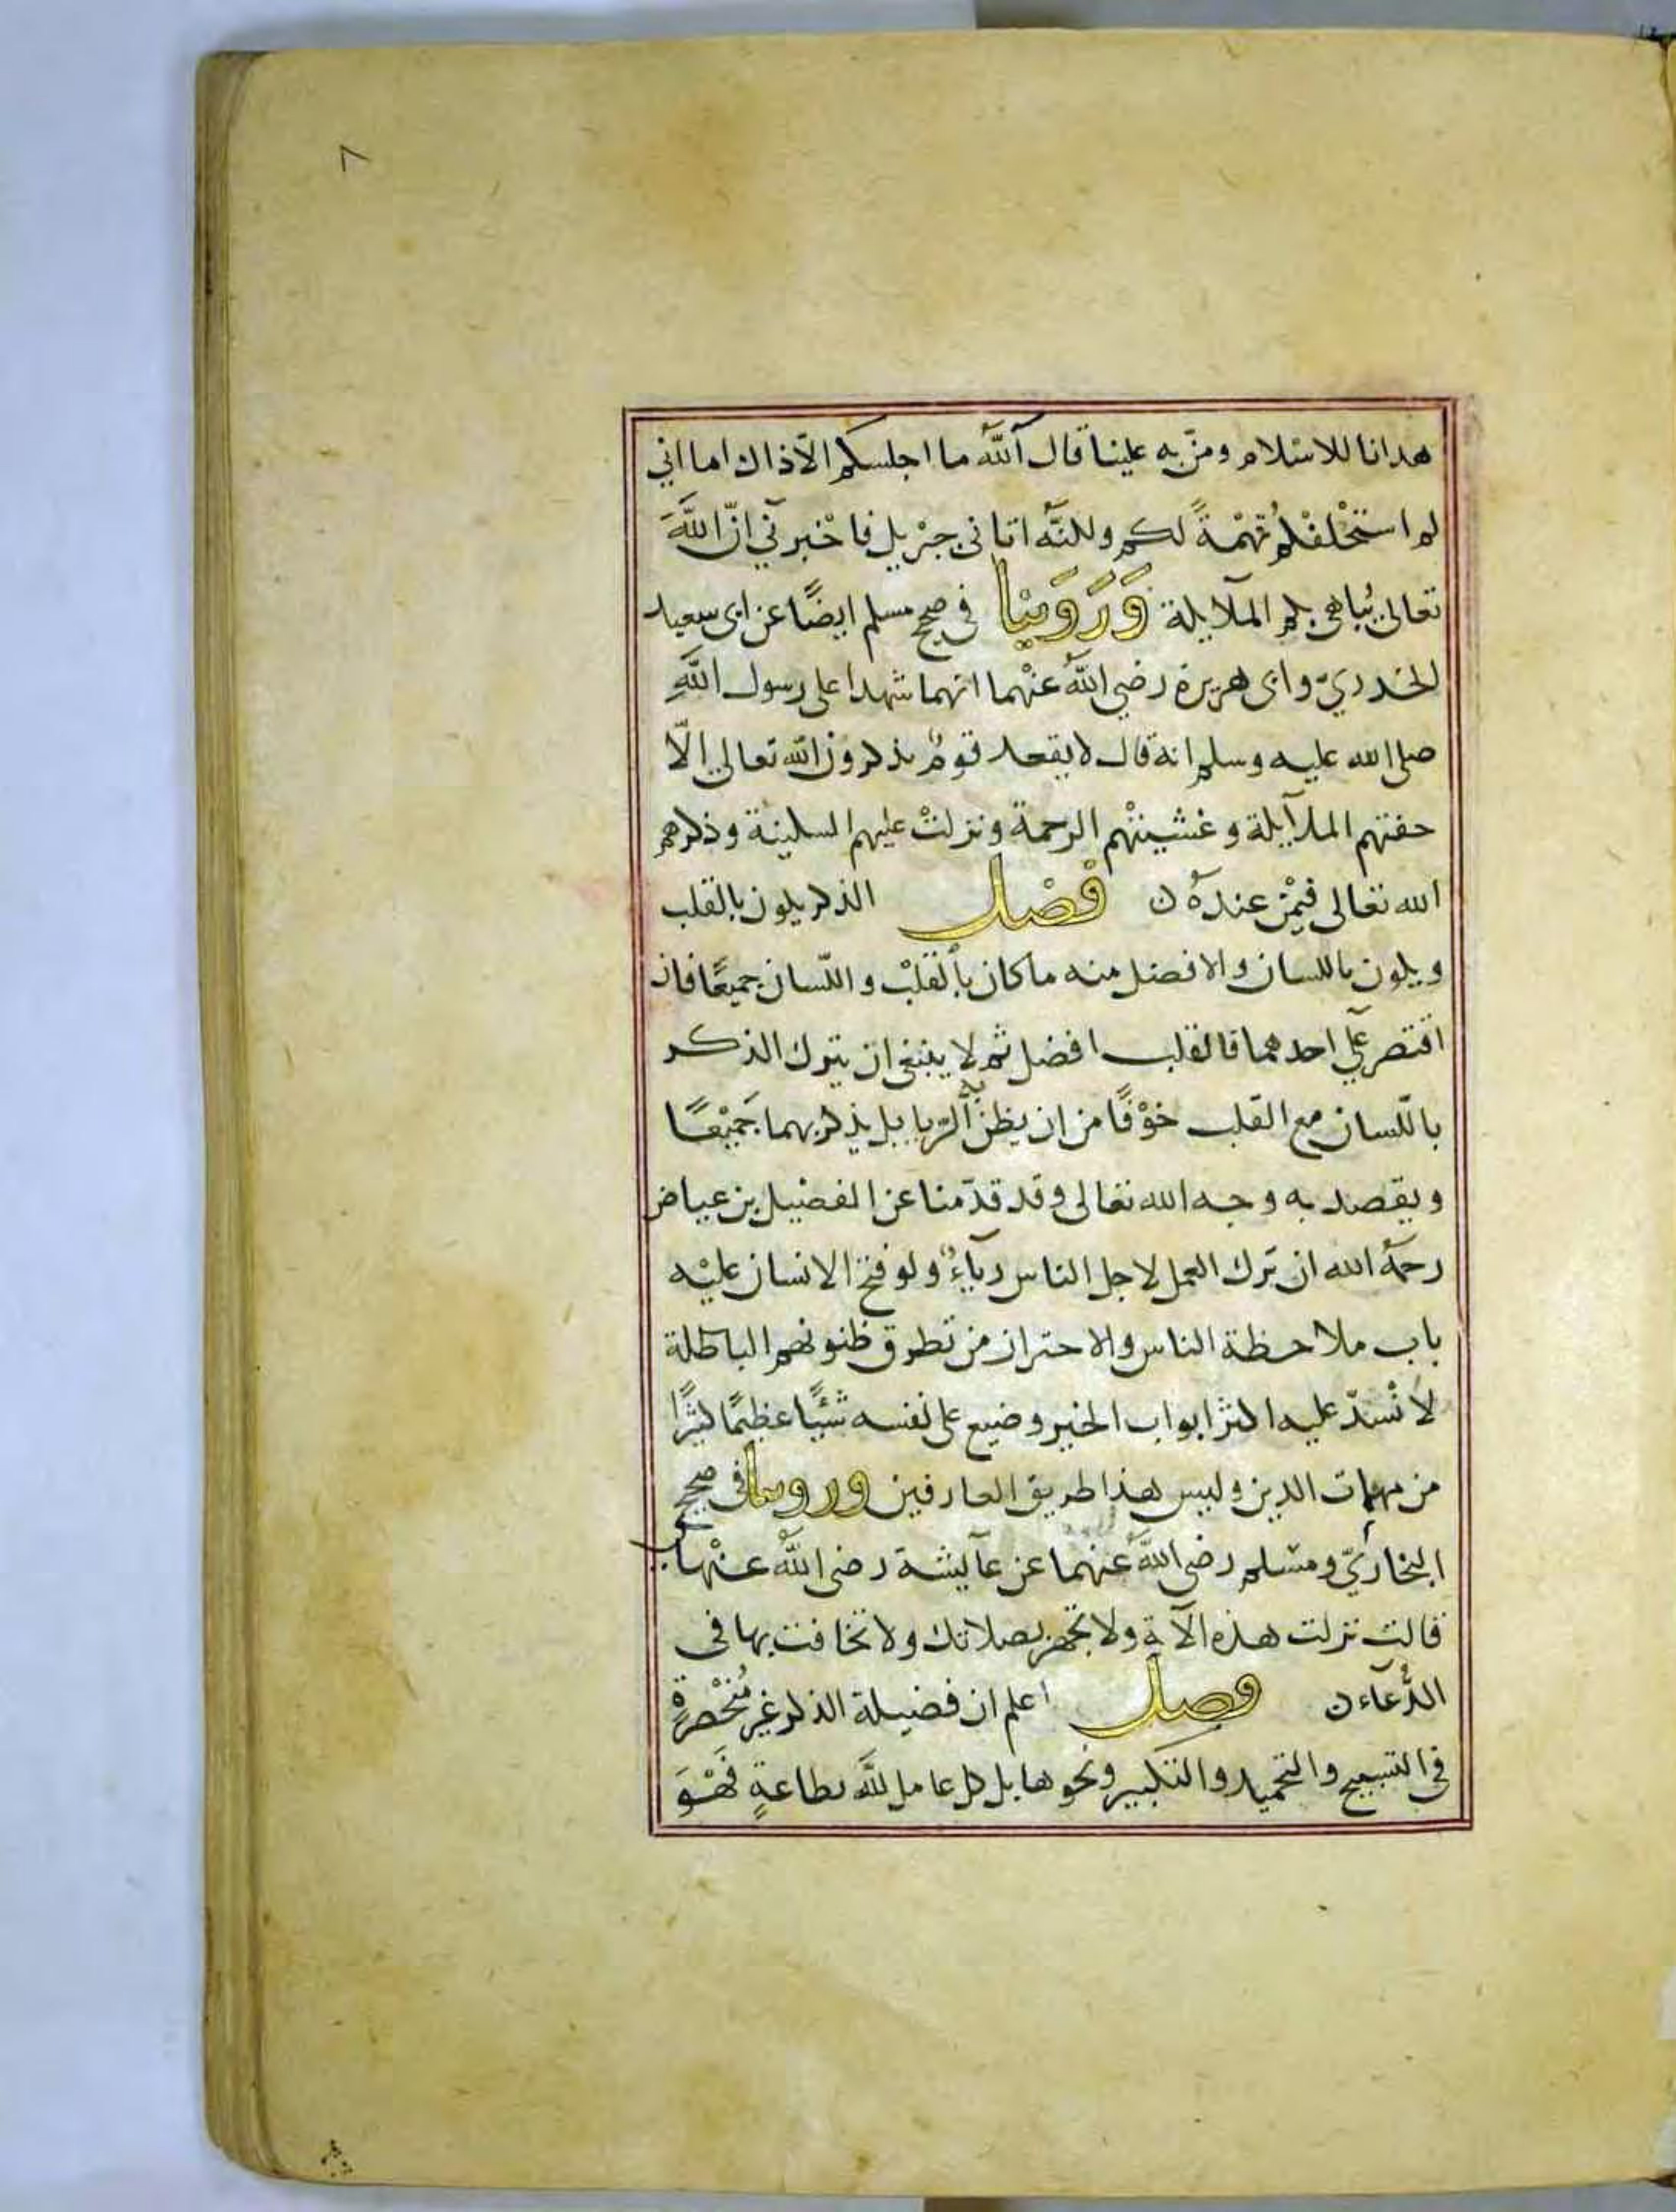 ٨
هدانا للاسْلام ومنّ به علينا قال آللهُ ما اجلسكم الّا ذاك اما اني
لم استحْلفْكم تُهْمةً لكم ولكنّه اتانى جبْريل فاخْبرني انّ اللهَ
تعالى يُباهى بكم الملآيكة وَرَوَيْنا في صحيح مسلم ايضًا عن ابى سعيد
الخدريّ وابى هريرة رضي اللهُ عنْهما انهما شهدا على رسول اللهِ
صلى الله عليه وسلم انه قال لا يقعد قومٌ يذكرون الله تعالى الّا
حفتهم الملآيكة وغشيتْهم الرحمة ونزلتْ عليهم السكينة وذكرهم
الله تعالى فيمْن عندهُ ن فصْل الذكر يكون بالقلب
ويكون باللسان والافضل منه ماكان بالْقلبْ واللّسان جميعًا فان
اقتصر على احدهما فالقلب افضل ثم لا ينبغى ان يترك الذكر
باللّسان مع القلب خوْفًا من ان يظن به الرّيا بل يذكر بهما جَميْعًا
ويقصد به وجه الله تعالى وقد قدّمنا عن الفضيل بن عياض
رحمهُ الله ان تَرك العمل لاجل الناس رياءٌ ولو فتح الانسان عليْه
باب ملاحظة الناس والاحتراز من تطرق ظنونهم الباطلة
لانْسدّ عليه اكثر ابواب الخير وضيع على نفسه شَيْئًا عظيمًا كثيرًا
من مهمات الدين وليس هذا طريق العارفين وروينا فى صحيح
البخاريّ ومسْلم رضى اللهُ عنهما عن عآيشة رضى اللهُ عنْها
قالت نزلت هذه الآية ولا تجهر بصلاتك ولا تخافت بها فى
الدُّعَاء ن فصل اعلم ان فضيلة الذكر غير مُنْحَصرةٍ
فى التسبيح والتحميد والتكبير ونحوها بل كل عامل للهِ بطاعةٍ فَهْوَ